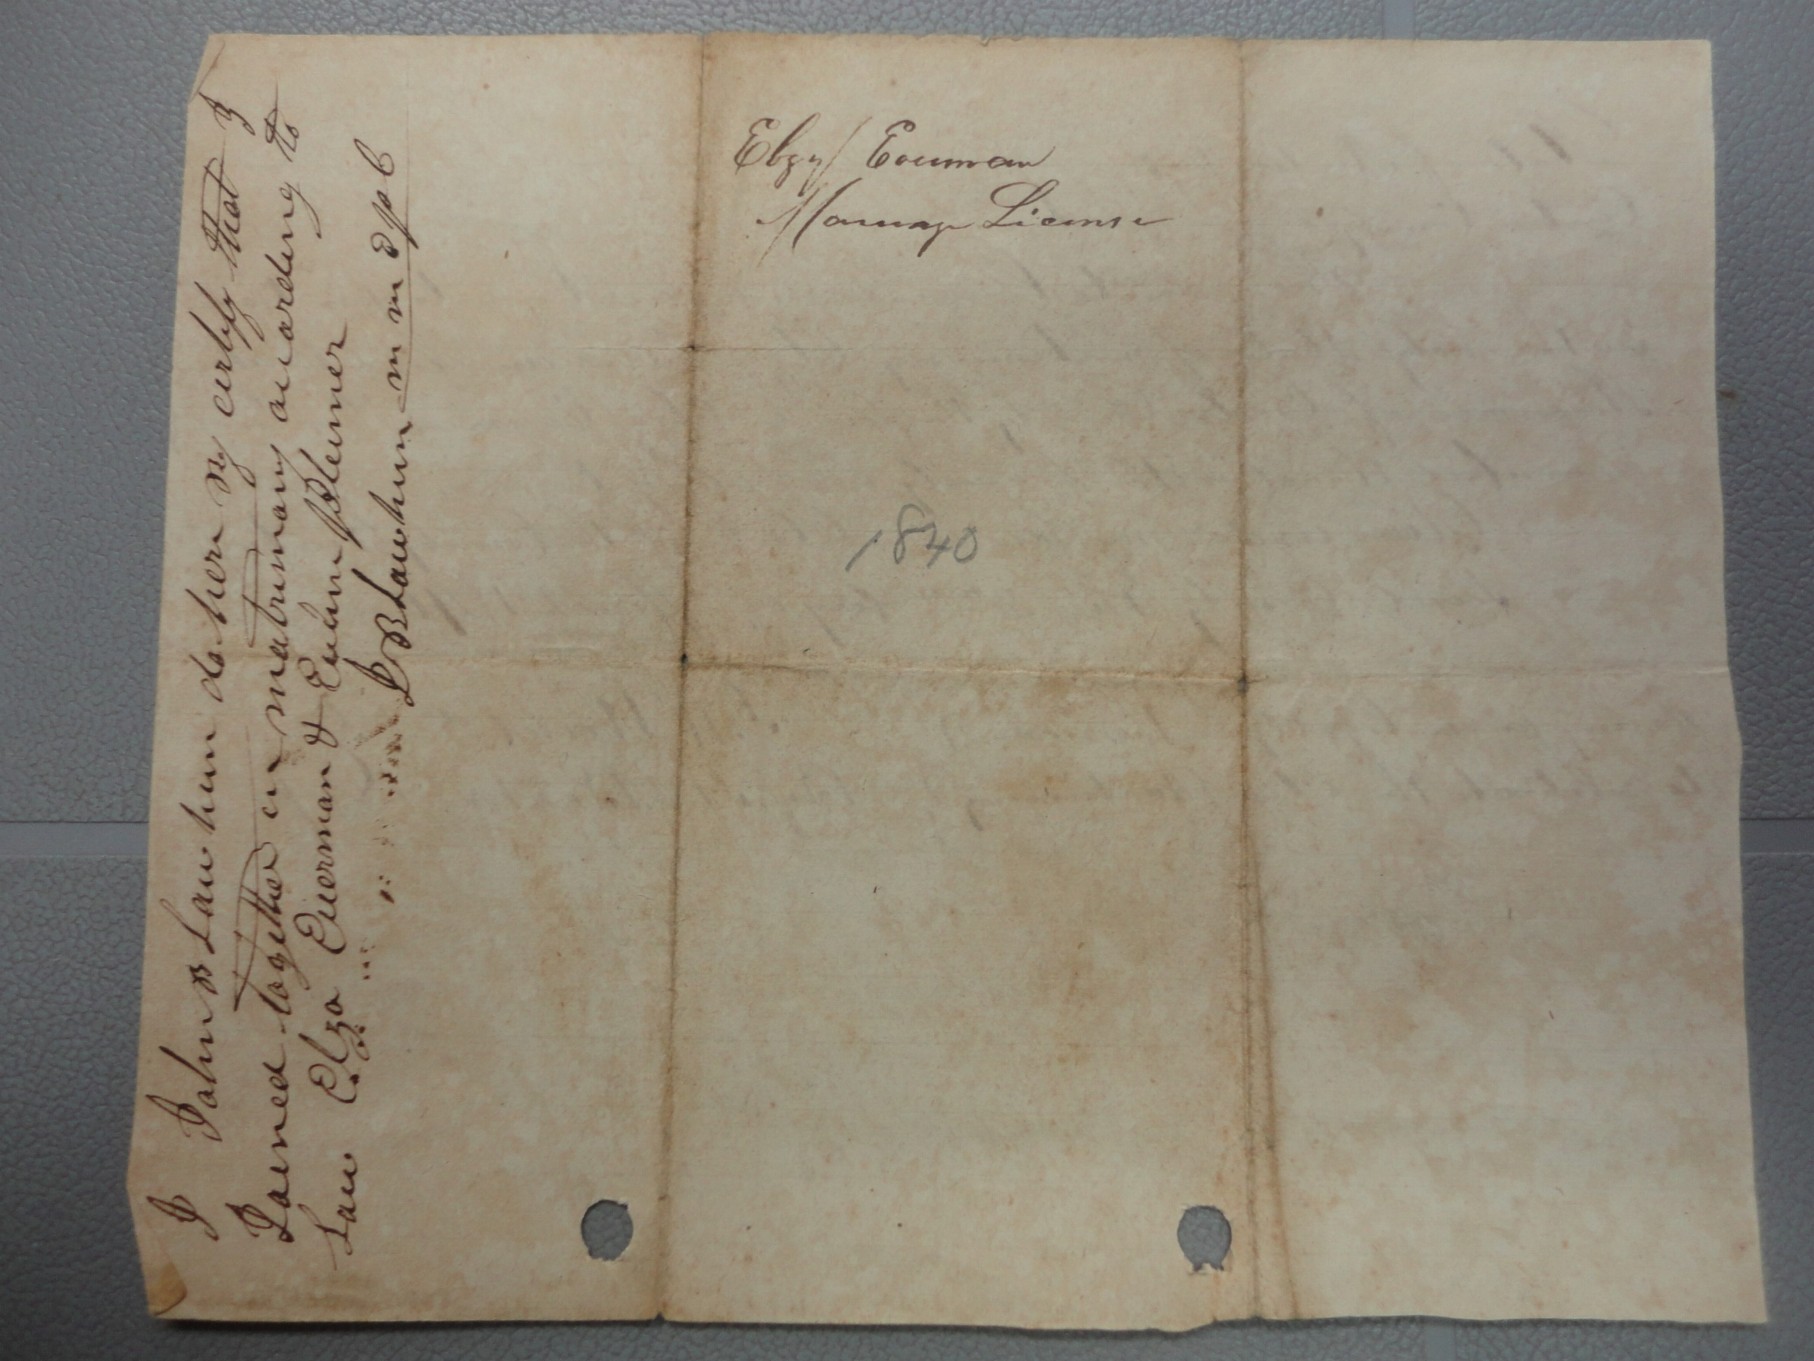 I John B Lawhun do here by certify that I
Joined together in matrimony according to
Law Elza Everman & Plumer
J B Lawhun
Elzy Eveman
Marriage License
1840